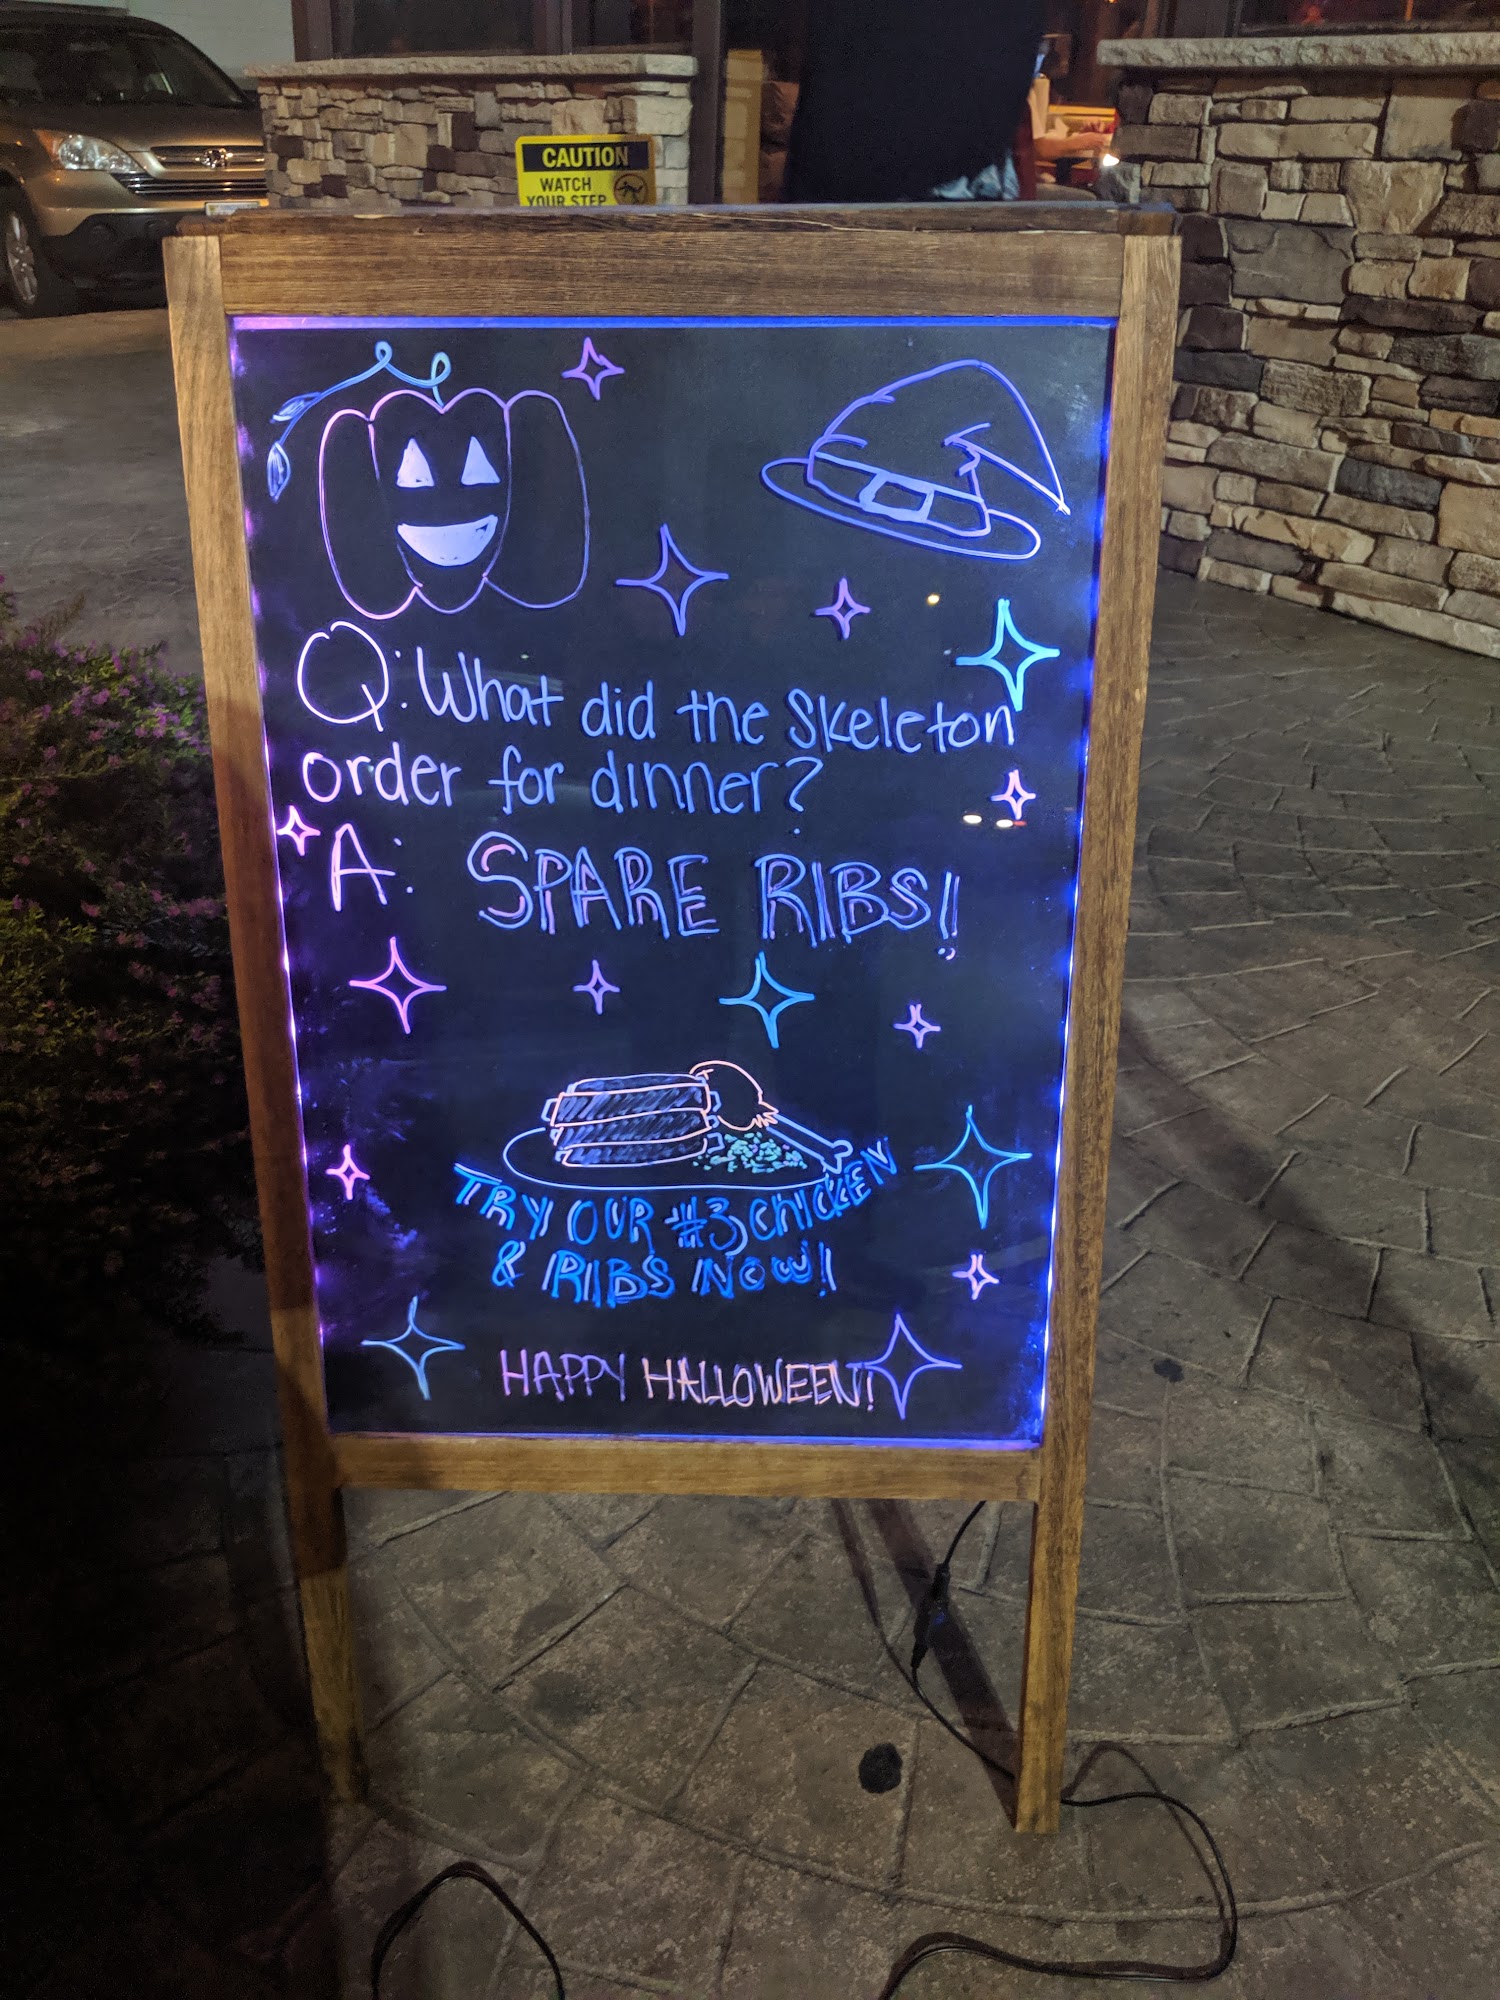 CAUTION
WATCH
YOUR STEP
Q: What did the skeleton
order for dinner?
A: SPARE RIBS!
TRY OUR #3 CHICKEN
& RIBS NOW!
HAPPY HALLOWEEN!